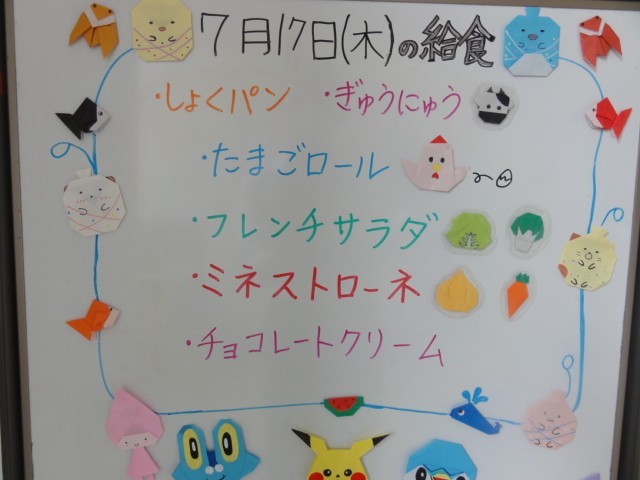 7月17日(木)の給食
・しょくパン ・ぎゅうにゅう
・たまごロール
・フレンチサラダ
・ミネストローネ
・チョコレートクリーム